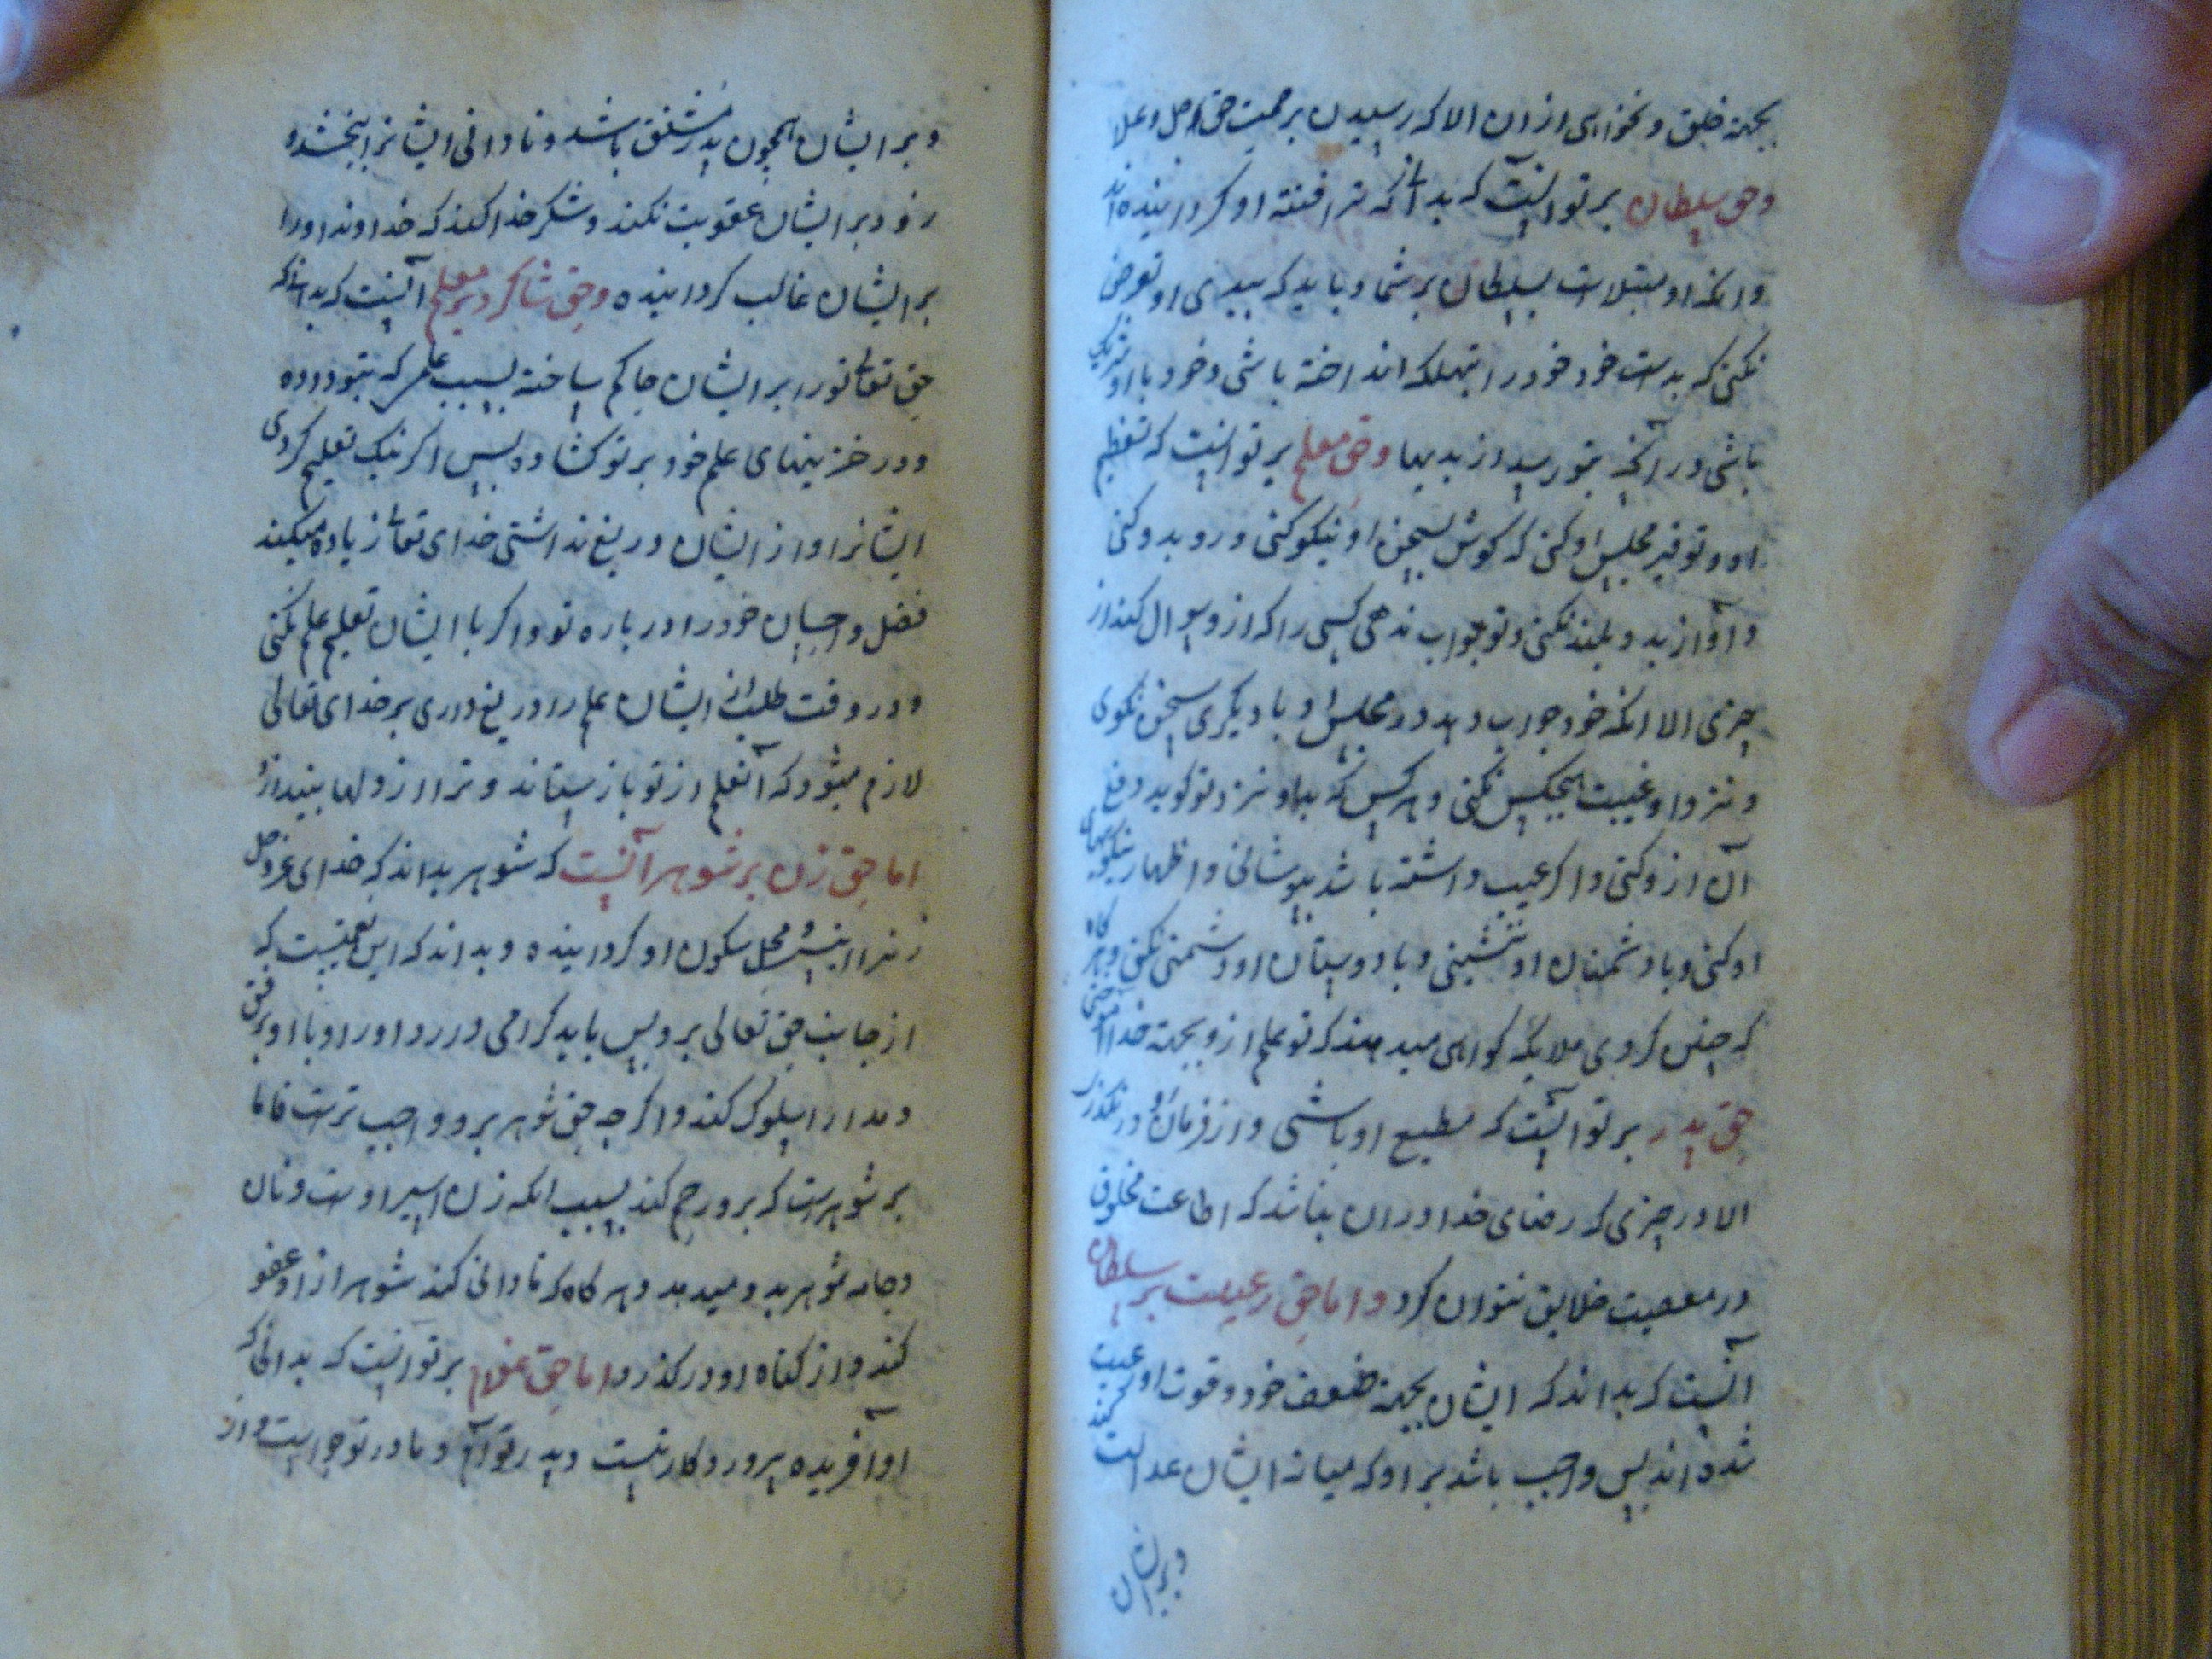 بجهة خلق و نخواهی ازان الا که رسیدن برحمت حق جل و علا
و حق سلطان بر تو آنست که بدانی که ترا فتنه او کردانیده اند
و انکه او مبتلاست بسلطان بر شما و باید که ببدی او تعرض
نکنی که بدست خود خود را بتهلکه انداخته باشی و خود با او شریک
باشی در آنچه بتو رسد از بدیها و حق معلم بر تو آنست که تعظیم
او و توقیر مجلس او کنی که کوش بسخن او نیکو کنی و رو بدو کنی
و آواز بدو بلند نکنی و تو جواب ندهی کسی را که ازو سوال کند از
چیزی الا انکه خود جواب دهد و در مجلس او با دیکری سخن نکوی
و نزد او غیبت هیچکس نکنی و هر کس که بد او نزد تو کوید دفع
آن ازو کنی و اکر عیب داشته باشد بپوشانی و اظهار نیکویهای
او کنی و با دشمنان او ننشینی و با دوستان او دشمنی نکنی و هر کاه
که چنین کردی ملایکه کواهی میدهند که تو علم ازو بجهة خدا آموختی
حق پدر بر تو آنست که مطیع او باشی و از فرمان او در نکذری
الا در چیزی که رضای خدا در ان نباشد که اطاعت مخلوق
در معصیت خالق نتوان کرد و اما حق رعیت بر سلطان
آنست که بداند که ایشان بجهة ضعف خود و قوت او رعیت
شده اند پس واجب باشد بر او که میانه ایشان عدالت کند
و بر ایشان
و بر ایشان همچون پدر مشفق باشد و نادانی ایشانرا ببخشد و
زود بر ایشان عقوبت نکند و شکر خدا کند که خداوند او را
بر ایشان غالب کردانیده و حق شاکرد بر معلم آنست که بداند که
حق تعالی تو را بر ایشان حاکم ساخته بسبب علم که بتو داده
و در خزینهای علم خود بر تو کشاده پس اکر نیک تعلیم کردی
ایشانرا و از ایشان دریغ نداشتی خدای تعالی زیاده میکند
فضل و احسان خود را در باره تو و اکر با ایشان تعلیم علم نکنی
و در وقت طلب ایشان علم را دریغ داری بر خدای تعالی
لازم میشود که آنعلم از تو باز ستاند و ترا از دلها بیندازد
اما حق زن بر شوهر آنست که شوهر بداند که خدای عز و جل
زنرا انیس و محل سکون او کردانیده و بداند که این نعمتیست که
از جانب حق تعالی بر و پس باید کرامی دارد او را و با او برفق
و مدارا سلوک کند و اکر چه حق شوهر برو واجب ترست فاما
بر شوهرست که برو رحم کند بسبب انکه زن اسیر اوست و نان
و جامه شوهر بدو میدهد و هر کاه که نادانی کند شوهر از او عفو
کند و از کناه او در کذرد و اما حق غلام بر تو آنست که بدانی که
او آفریده پروردکار تست و پدر تو آدم و مادر تو حواست و از